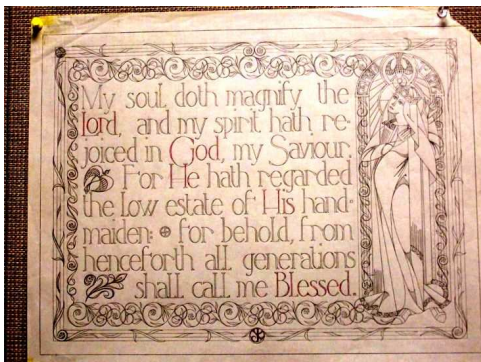 My soul doth magnify the
Lord, and my spirit hath re-
joiced in God, my Saviour.
For He hath regarded
the low estate of His hand-
maiden: for behold, from
henceforth all generations
shall call me Blessed.